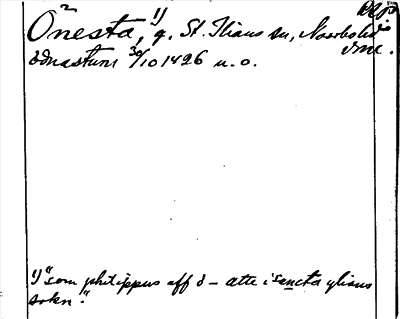 Önesta, 1) g. St. Ilians sn, Norrbo hd
vml.
ödnastum 30/10 1426 u. o.
1) "som philippus aff ö – atte i sancta ylians
sokn".